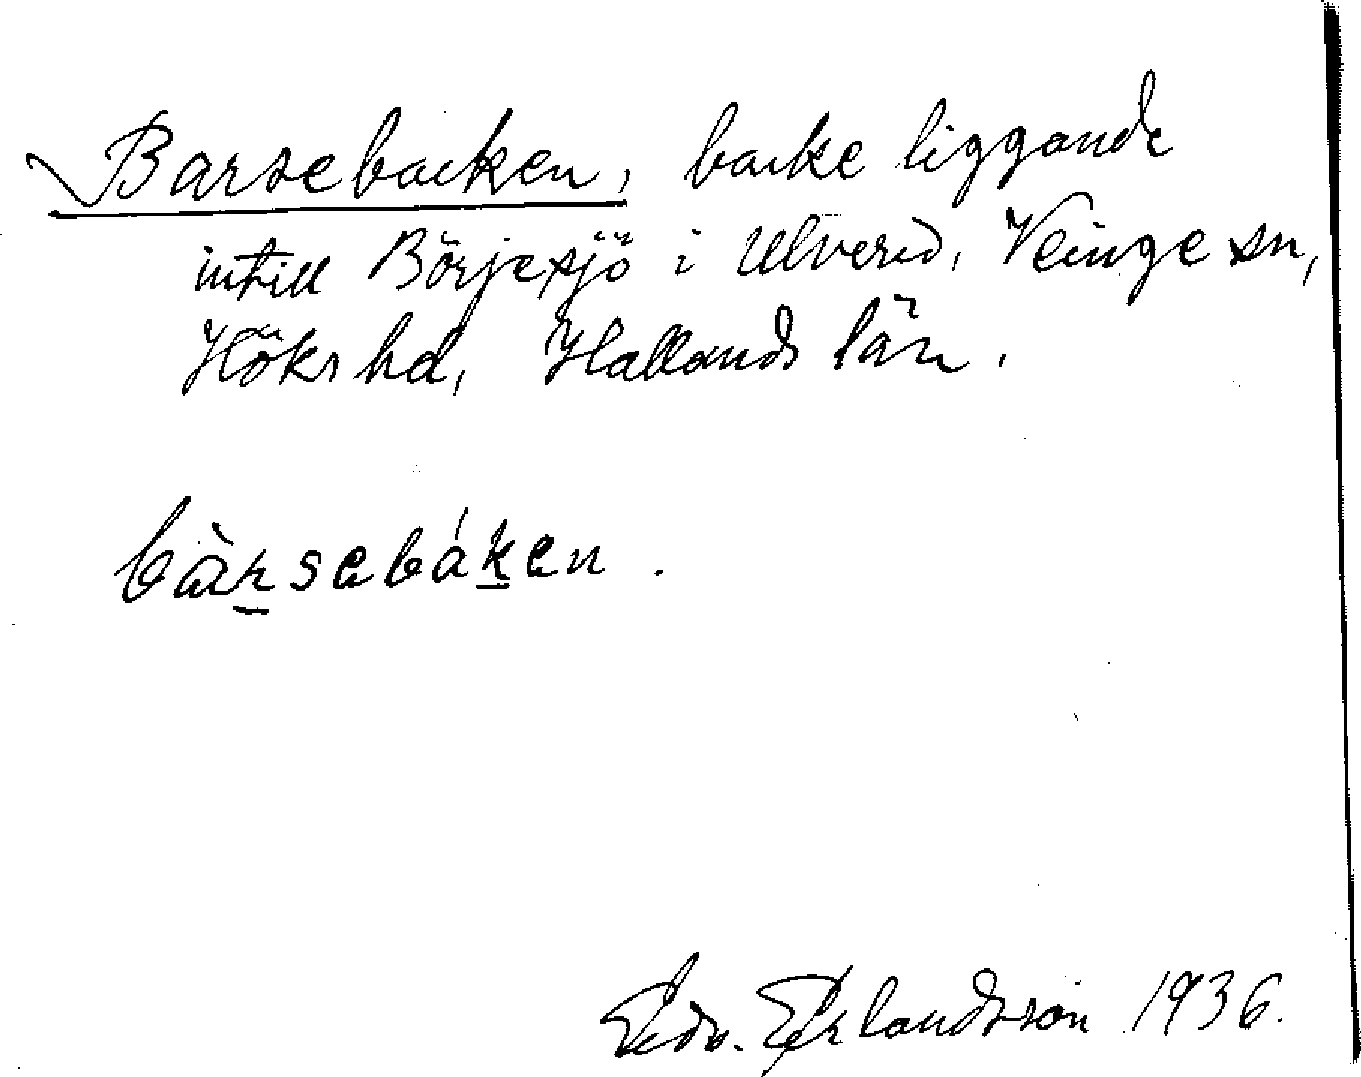 Barsebacken, backe liggande
intill Börjesjö i Ulvered, Veinge sn,
Höks hd, Hallands län.
bàrsebáken.
Edv. Erlandsson 1936.